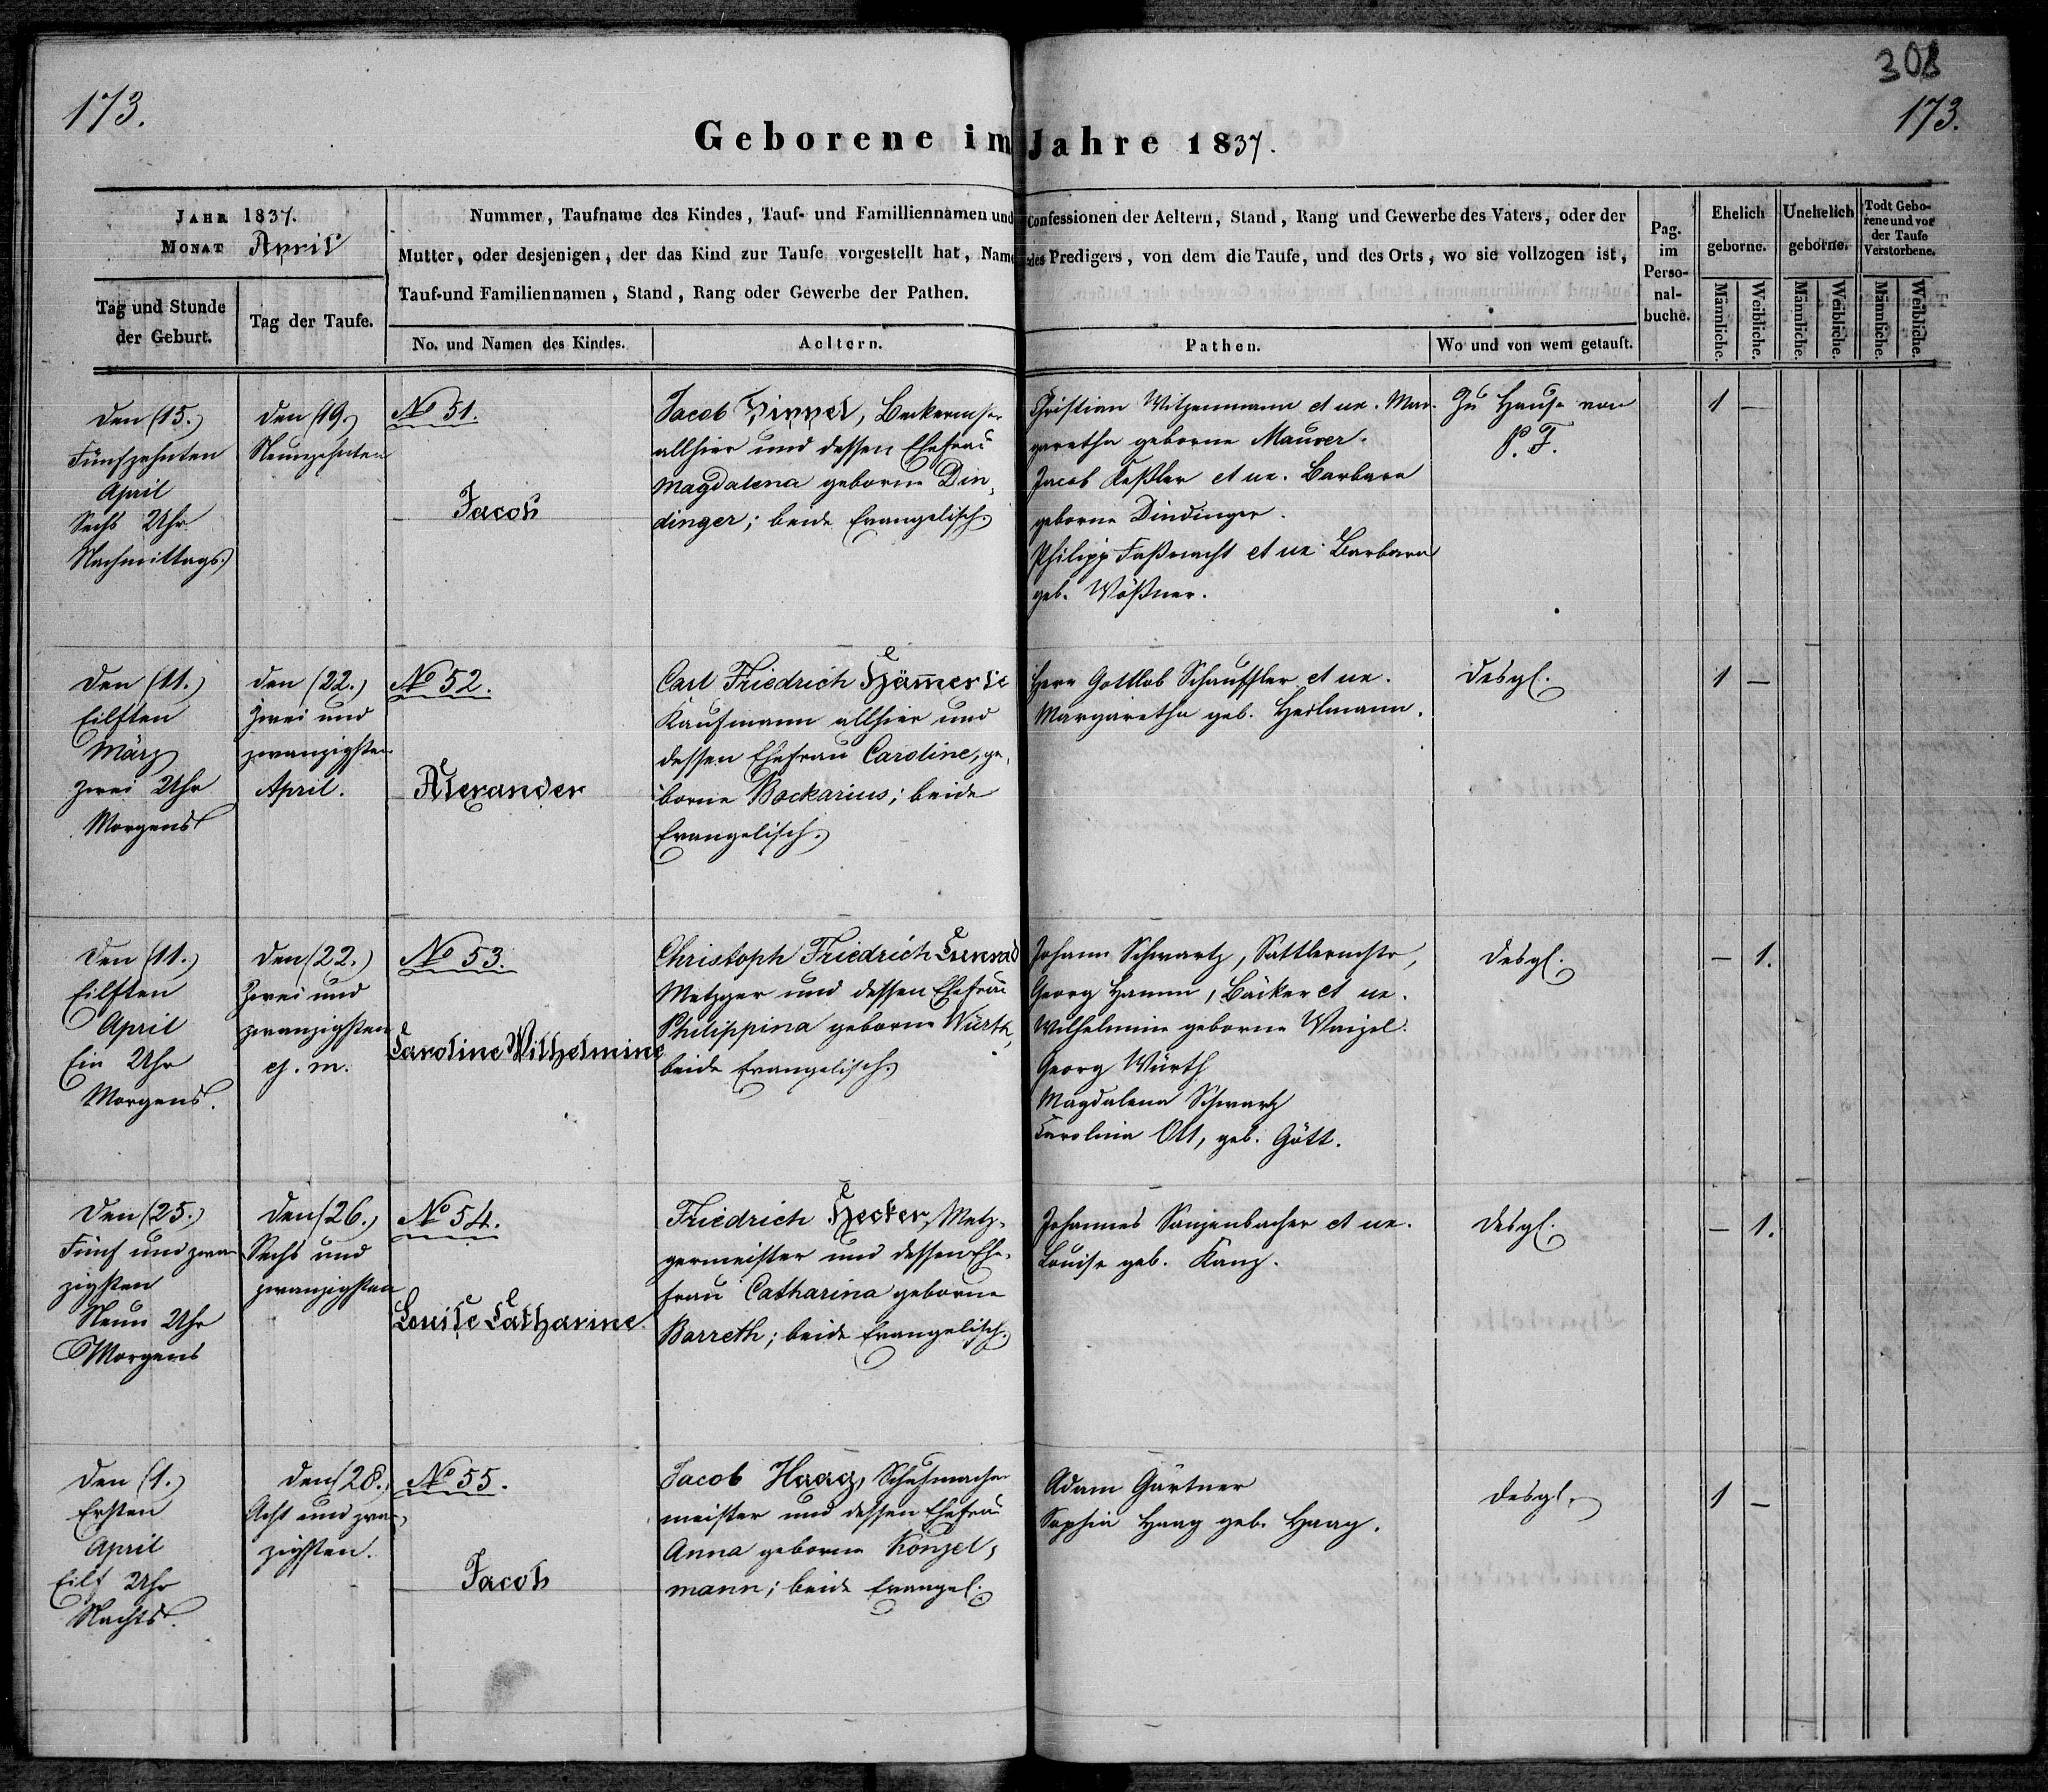 173.
308
173.
Geborene im Jahre 1837.
JAHR 1837.
MONAT April
Tag und Stunde
der Geburt.
Tag der Taufe.
Nummer, Taufname des Kindes, Tauf- und Familliennamen und Confessionen der Aeltern, Stand, Rang und Gewerbe des Vaters, oder der
Mutter, oder desjenigen, der das Kind zur Taufe vorgestellt hat, Name des Predigers, von dem die Taufe, und des Orts, wo sie vollzogen ist,
Tauf-und Familiennamen, Stand, Rang oder Gewerbe der Pathen.
No. und Namen des Kindes.
Aeltern.
Pathen.
Wo und von wem getauft.
Pag.
im
Perso-
nal-
buche.
Ehelich
geborne.
Unehelich
geborne.
Todt Gebo-
rene und vor
der Taufe
Verstorbene.
Männliche.
Weibliche.
Männliche.
Weibliche.
Männliche.
Weibliche.
Den (15.)
Fünfzehnten
April
Sechs Uhr
Nachmittags.
den (19.)
Neunzehnten
No 51.
Jacob
Jacob Dippel, Beckermstr
allhier und dessen Ehefrau
Magdalena geborne Din-
dinger; beide Evangelisch.
Christian Witzenmann et ux. Mar-
garetha geborne Maurer.
Jacob Keßler et ux. Barbara
geborne Dindinger.
Philipp Faßnacht et ux. Barbara
geb. Wößner.
Zu Hause von
P. F.
1 –
Den (11.)
Eilften
März
zwei Uhr
Morgens
den (22.)
Zwei und
zwanzigsten
April.
No 52.
Alexander
Carl Friedrich Häm̄erle
Kaufmann allhier und
dessen Ehefrau Caroline, ge-
borne Bockarius; beide
Evangelisch.
Herr Gottlob Schauffler et ux.
Margaretha geb. Heilmann.
desgl.
1 –
Den (11.)
Eilften
April
Ein Uhr
Morgens.
Den (22.)
Zwei und
zwanzigsten
ej. m.
No 53.
Caroline Wilhelmine
Christoph Friedrich Cunrad
Metzger und dessen Ehefrau
Philippina geborne Würth,
beide Evangelisch.
Johann Schwartz, Sattlermstr,
Georg Hamm, Bäcker et ux.
Wilhelmine geborne Waizel.
Georg Würth
Magdalena Schwartz
Carolina Ott, geb. Gött.
desgl.
– 1.
Den (25.)
Fünf und zwan
zigsten
Neun Uhr
Morgens
Den (26.)
Sechs und
zwanzigsten
No 54.
Louise Catharine
Friedrich Hecker, Metz-
germeister und dessen Ehe-
frau Catharina geborne
Barreth; beide Evangelisch.
Johannes Sanzenbacher et ux.
Louise geb. Kanz.
desgl.
– 1.
Den (1.)
Ersten
April
Eilf Uhr
Nachts.
Den (28.)
Acht und zwan-
zigsten.
No 55.
Jacob
Jacob Haag, Schuhmacher
meister und dessen Ehefrau
Anna geborne Konzel-
mann; beide Evangel.
Adam Gärtner
Sophia Haag geb. Haag.
desgl.
1 –